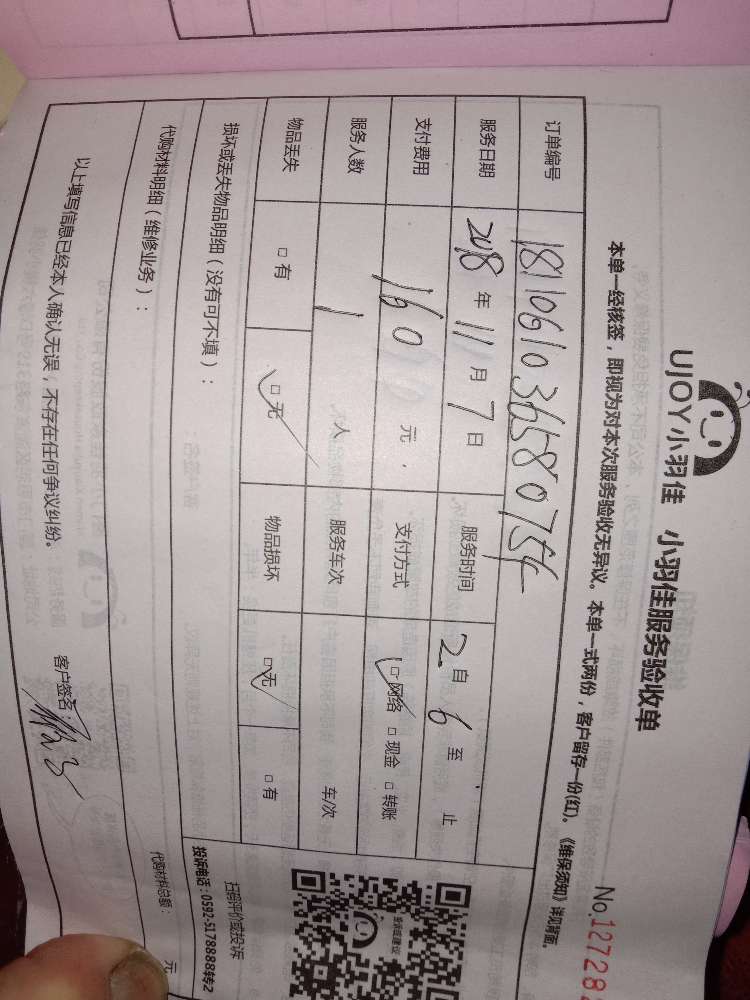 UJOY小羽佳 小羽佳服务验收单
No.12728
本单一经核签，即视为对本次服务验收无异议。本单一式两份，客户留存一份(红)。《维保须知》详见背面。
订单编号 1811061036580754
服务日期 2018 年 11 月 7 日 服务时间 2 自 6 至 止
支付费用 1600 元， 支付方式 □ 网络 □ 现金 □ 转账
服务人数 1 人 服务车次 车/次
物品丢失 □ 有 □ 无 物品损坏 □ 无 □ 有
损坏或丢失物品明细（没有可不填）：
扫描评价或投诉
投诉电话：0592-5178888转2
代购材料明细（维修业务）：
代购材料总额： 元
以上填写信息已经本人确认无误，不存在任何争议纠纷。 客户签名：